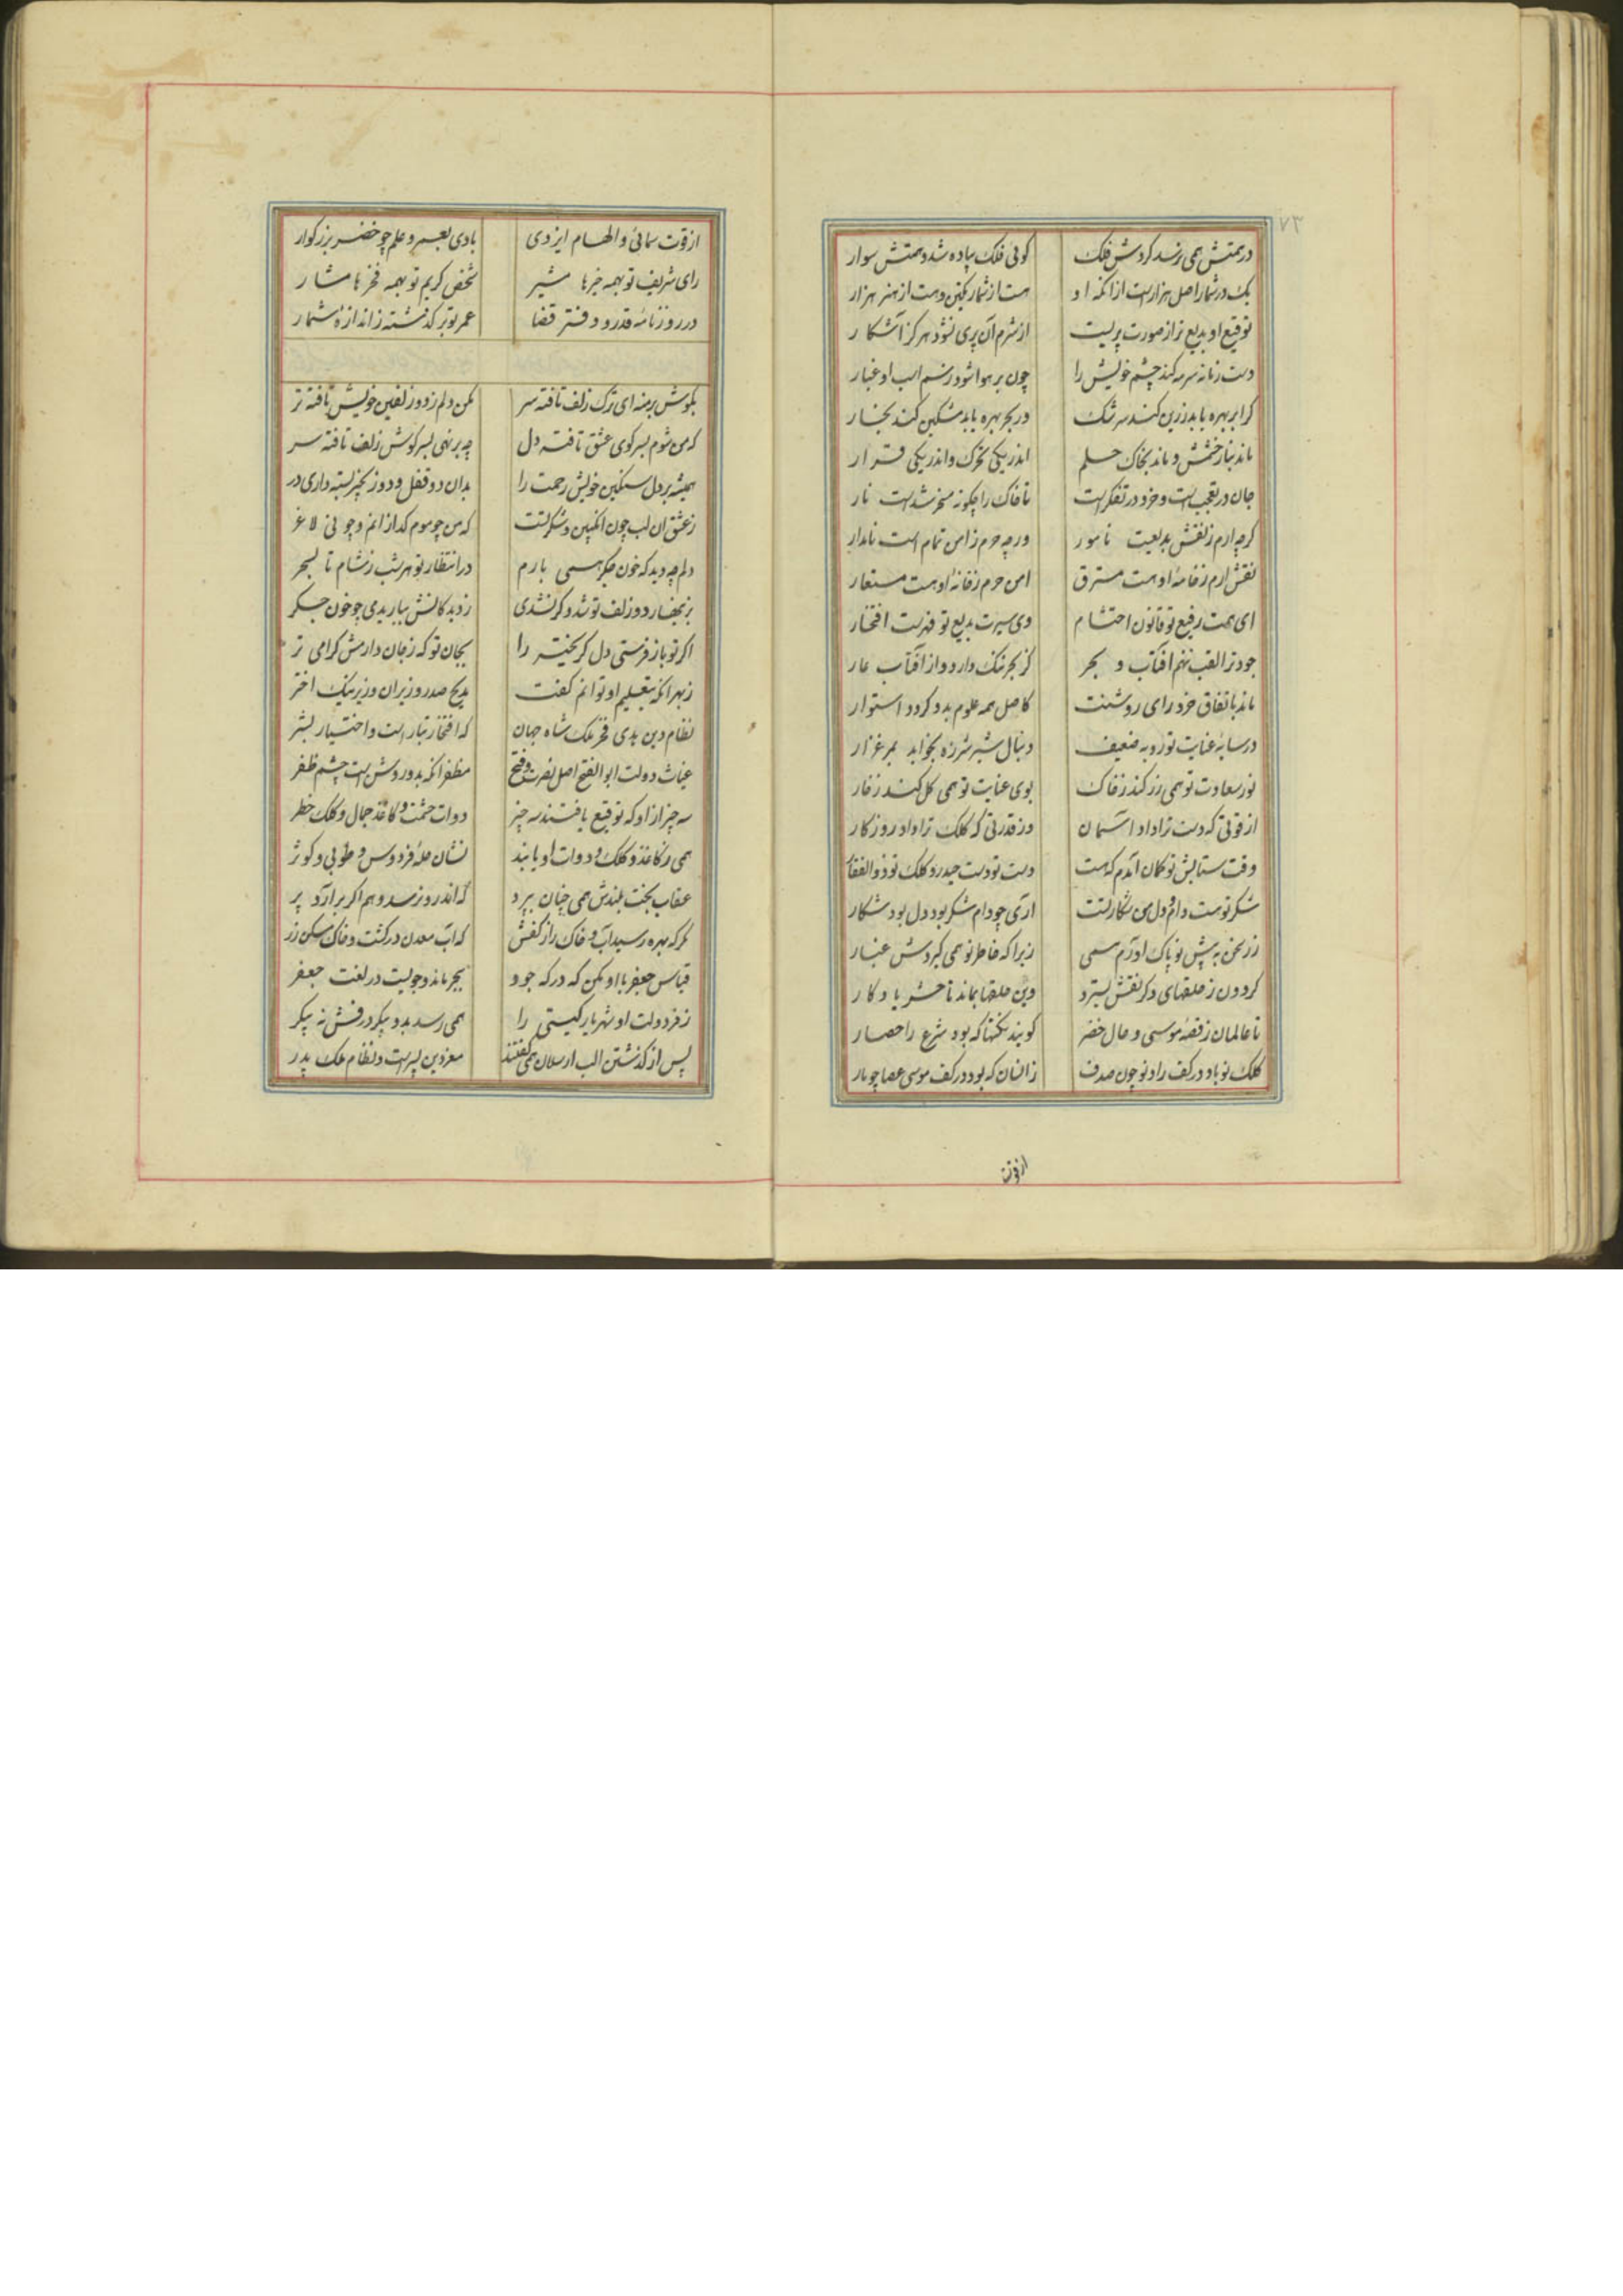 ۷۳
در همتش همی نرسد گردش فلک گوئی فلک پیاده شد و همتش سوار
یک در شمار اصل هزارست از آنکه او هست از شمار یکتن و هست از هنر هزار
توقیع او بدیع تر از صورت پریست از شرم آن پری نشود هرگز آشکار
دست زمانه سرمه کند چشم خویش را چون بر هوا شود ز سم اسب او غبار
گر ابر بهره یابد زرین کند سرشک ور بحر بهره یابد مشکین کند بخار
ماند بنار خشمش و ماند بخاک حلم اندر یکی تحرک و اندر یکی قرار
جان در تعجب است و خرد در تفکر است تا خاک را چگونه مسخر شد است نار
گرچه ارم ز نقش بدیعست نامور ورچه حرم ز امن تمام است نامدار
نقش ارم ز خامهٔ او هست مسترق امن حرم ز خانهٔ او هست مستعار
ای همت رفیع تو قانون احتشام وی سیرت بدیع تو فهرست افتخار
جود ترا لقب ننهم آفتاب و بحر کز بحر ننگ دارد و از آفتاب عار
ماند باتفاق خرد رای روشنت کاصل همه علوم بدو گردد استوار
در سایهٔ عنایت تو روبه ضعیف دنبال شیر شرزه بخواید بمرغزار
نور سعادت تو همی زر کند ز خاک بوی عنایت تو همی گل کند ز خار
از قوتی که دست ترا داد آسمان وز قدرتی که کلک ترا داد روزگار
وقت ستایش تو گمان آیدم که هست دست تو دست حیدر و کلک تو ذوالفقار
شکر تو هست دام و دل من شکار تست آری چو دام شکر بود دل بود شکار
زر سخن به پیش تو پاک آورم همی زیرا که خاطر تو همی گیردش عیار
گردون ز حلقهای دگر نقش بسترد وین حلقها بماند تا حشر یادگار
تا عالمان ز قصهٔ موسی و حال خضر گویند نکتها که بود شرع را حصار
کلک تو باد در کف راد تو چون صدف زانسان که بود در کف موسی عصا چو مار
از قوت
از قوت سمائی و الهام ایزدی بادی بعمر و علم چو خضر بزرگوار
رای شریف تو بهمه خیرها مشیر شخص کریم تو بهمه فخرها مشار
در روزنامه قدر و دفتر قضا عمر تو بر گذشته ز اندازهٔ شمار
بگوش برمنه ای ترک زلف تافته سر مکن دلم ز دو زلفین خویش تافته تر
که من شوم بسر کوی عشق تافته دل چه بر نهی بسر گوش زلف تافته سر
همیشه بر دل سنگین خویش رحمت را بدان دو قفل و دو زنجیر بسته داری در
ز عشق آن لب چون انگبین و شکر تست که من چو موم گدازانم و چو نی لاغر
دلم چه دید که خون جگر همی بارم در انتظار تو هر شب ز شام تا بسحر
بزینهار دو زلف تو شد و گر نشدی ز دیدگانش بباریدمی چو خون جگر
اگر تو باز فرستی دل گریخته را بجان تو که ز جان دارمش گرامی تر
ز بهر آنکه بتعلیم او توانم گفت مدیح صدر وزیران وزیر نیک اختر
نظام دین هدی فخر ملک شاه جهان که افتخار تبار است و اختیار بشر
غیاث دولت ابوالفتح اصل نصرت و فتح مظفر آنکه بدو روشن است چشم ظفر
سه چیز از او که توقیع یافتند سه چیز دوات حشمت و کاغذ جمال و کلک خطر
همی ز کاغذ و کلک و دوات او یابند نشان حلهٔ فردوس و طوبی و کوثر
عقاب بخت بلندش همی چنان پرد که اندرو نرسد وهم اگر برآرد پر
مگر که بهره رسید آب و خاک را ز کفش که آب معدن در گشت و خاک مسکن زر
قیاس جعفر با او مکن که درگه جود ببحر ماند و جویست در لغت جعفر
ز فر دولت او شهریار گیتی را همی رسد بدو پیکر درفش نه پیکر
پس از گذشتن الب ارسلان همی گفتند معز دین پسر است و نظام ملک پدر